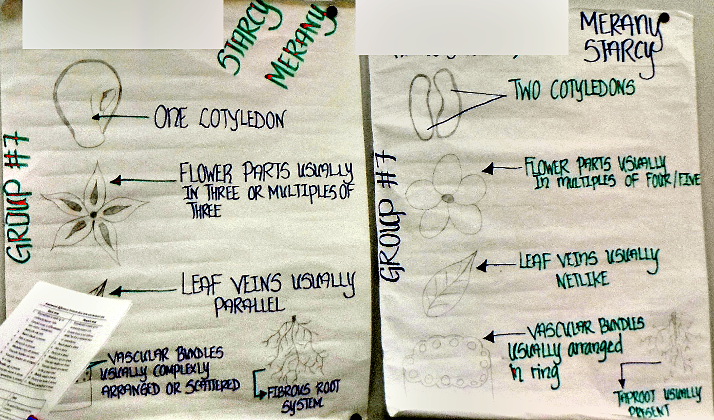 STARCY
MERANY
GROUP #7
ONE COTYLEDON
FLOWER PARTS USUALLY
IN THREE OR MULTIPLES OF
THREE
LEAF VEINS USUALLY
PARALLEL
VASCULAR BUNDLES
USUALLY COMPLEXLY
ARRANGED OR SCATTERED
FIBROUS ROOT
SYSTEM
MERANY
STARCY
GROUP #7
TWO COTYLEDONS
FLOWER PARTS USUALLY
IN MULTIPLES OF FOUR/FIVE
LEAF VEINS USUALLY
NETLIKE
VASCULAR BUNDLES
usually arranged
in ring
TAPROOT USUALLY
PRESENT